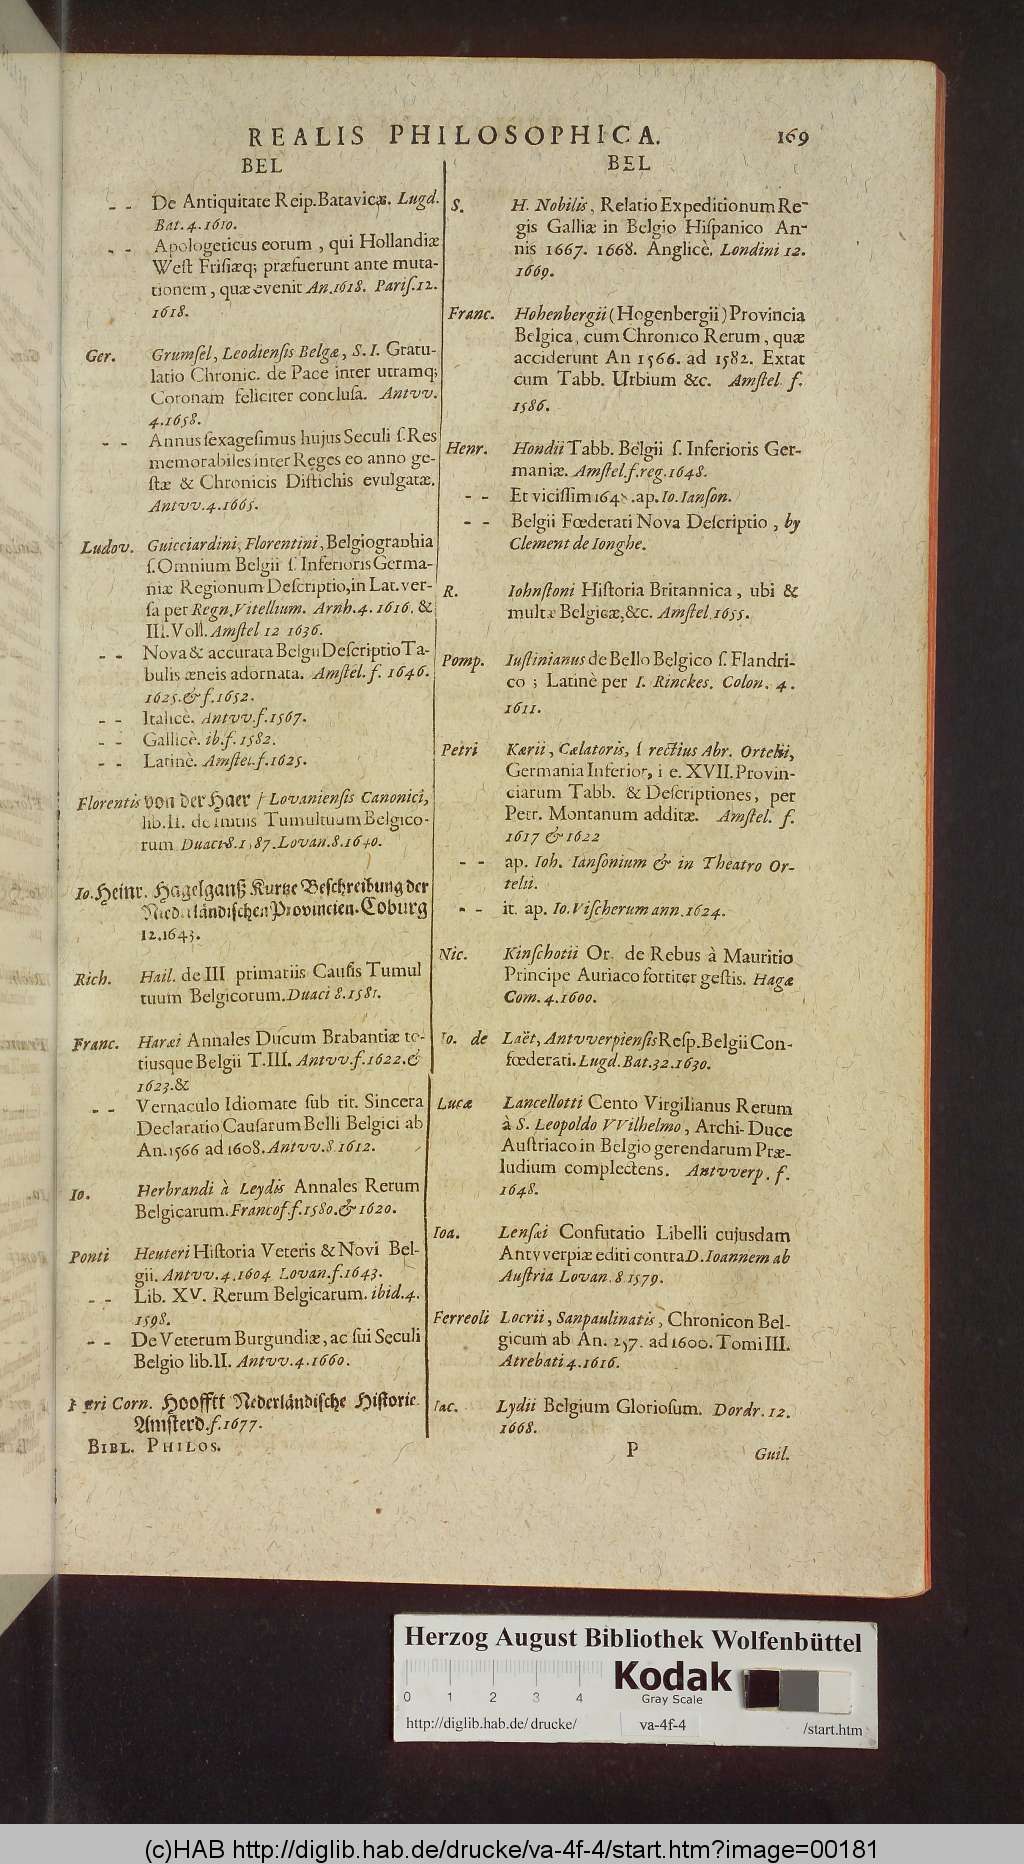 REALIS PHILOSOPHICA. 169
BEL
- - De Antiquitate Reip. Batavicæ. Lugd.
Bat. 4. 1610.
- - Apologeticus eorum, qui Hollandiæ
West Frisiæq; præfuerunt ante muta-
tionem, quæ evenit An. 1618. Paris. 12.
1618.
Ger. Grumsel, Leodiensis Belgæ, S. I. Gratu-
latio Chronic. de Pace inter utramq;
Coronam feliciter conclusa. Antvv.
4. 1658.
- - Annus sexagesimus hujus Seculi s. Res
memorabiles inter Reges eo anno ge-
stæ & Chronicis Distichis evulgatæ.
Antvv. 4. 1665.
Ludov. Guicciardini, Florentini, Belgiographia
s. Omnium Belgii s. Inferioris Germa-
niæ Regionum Descriptio, in Lat. ver-
sa per Regn. Vitellium. Arnh. 4. 1616. &
III. Voll. Amstel 12 1636.
- - Nova & accurata Belgii Descriptio Ta-
bulis æneis adornata. Amstel. f. 1646.
1625. & f. 1652.
- - Italicè. Antvv. f. 1567.
- - Gallicè. ib. f. 1582.
- - Latinè. Amstel. f. 1625.
Florentis von der Haer / Lovaniensis Canonici,
lib. II. de Initiis Tumultuum Belgico-
rum Duaci 8. 1587. Lovan. 8. 1640.
Io. Heinr. Hagelganß Kurtze Beschreibung der
Niederländischen Provincien. Coburg
12. 1643.
Rich. Hail. de III primariis Causis Tumul
tuum Belgicorum. Duaci 8. 1581.
Franc. Haræi Annales Ducum Brabantiæ to-
tiusque Belgii T. III. Antvv. f. 1622. &
1623. &
- - Vernaculo Idiomate sub tit. Sincera
Declaratio Causarum Belli Belgici ab
An. 1566 ad 1608. Antvv. 8. 1612.
Io. Herbrandi à Leydis Annales Rerum
Belgicarum. Francof. f. 1580. & 1620.
Ponti Heuteri Historia Veteris & Novi Bel-
gii. Antvv. 4. 1604 Lovan. f. 1643.
- - Lib. XV. Rerum Belgicarum. ibid. 4.
1598.
- - De Veterum Burgundiæ, ac sui Seculi
Belgio lib. II. Antvv. 4. 1660.
Petri Corn. Hoofftt Nederländische Historie
Amsterd. f. 1677.
BIBL. PHILOS.
BEL
S. H. Nobilis, Relatio Expeditionum Re-
gis Galliæ in Belgio Hispanico An-
nis 1667. 1668. Anglicè. Londini 12.
1669.
Franc. Hohenbergii (Hogenbergii) Provincia
Belgica, cum Chronico Rerum, quæ
acciderunt An 1566. ad 1582. Extat
cum Tabb. Urbium &c. Amstel. f.
1586.
Henr. Hondii Tabb. Belgii s. Inferioris Ger-
maniæ. Amstel. f. reg. 1648.
- - Et vicissim ap. Io. Ianson.
- - Belgii Fœderati Nova Descriptio, by
Clement de Ionghe.
R. Iohnstoni Historia Britannica, ubi &
multæ Belgicæ, &c. Amstel. 1655.
Pomp. Iustinianus de Bello Belgico s. Flandri-
co; Latinè per I. Rinckes. Colon. 4.
1611.
Petri Kærii, Cælatoris, s rectius Abr. Ortelii,
Germania Inferior, i e. XVII. Provin-
ciarum Tabb. & Descriptiones, per
Petr. Montanum additæ. Amstel. f.
1617 & 1622
- - ap. Ioh. Iansonium & in Theatro Or-
telii.
- - it. ap. Io. Vischerum ann. 1624.
Nic. Kinschotii Or. de Rebus à Mauritio
Principe Auriaco fortiter gestis. Hagæ
Com. 4. 1600.
Io. de Laët, Antvverpiensis Resp. Belgii Con-
fœderati. Lugd. Bat. 32. 1630.
Lucæ Lancellotti Cento Virgilianus Rerum
à S. Leopoldo VVilhelmo, Archi-Duce
Austriaco in Belgio gerendarum Præ-
ludium complectens. Antvverp. f.
1648.
Ioa. Lensæi Confutatio Libelli cujusdam
Antvverpiæ editi contra D. Ioannem ab
Austria Lovan. 8. 1579.
Ferreoli Locrii, Sanpaulinatis, Chronicon Bel-
gicum ab An. 257. ad 1600. Tomi III.
Atrebati 4. 1616.
Iac. Lydii Belgium Gloriosum. Dordr. 12.
1668.
P Guil.
Herzog August Bibliothek Wolfenbüttel
Kodak
Gray Scale
0 1 2 3 4
http://diglib.hab.de/drucke/ va-4f-4 /start.htm
(c)HAB http://diglib.hab.de/drucke/va-4f-4/start.htm?image=00181